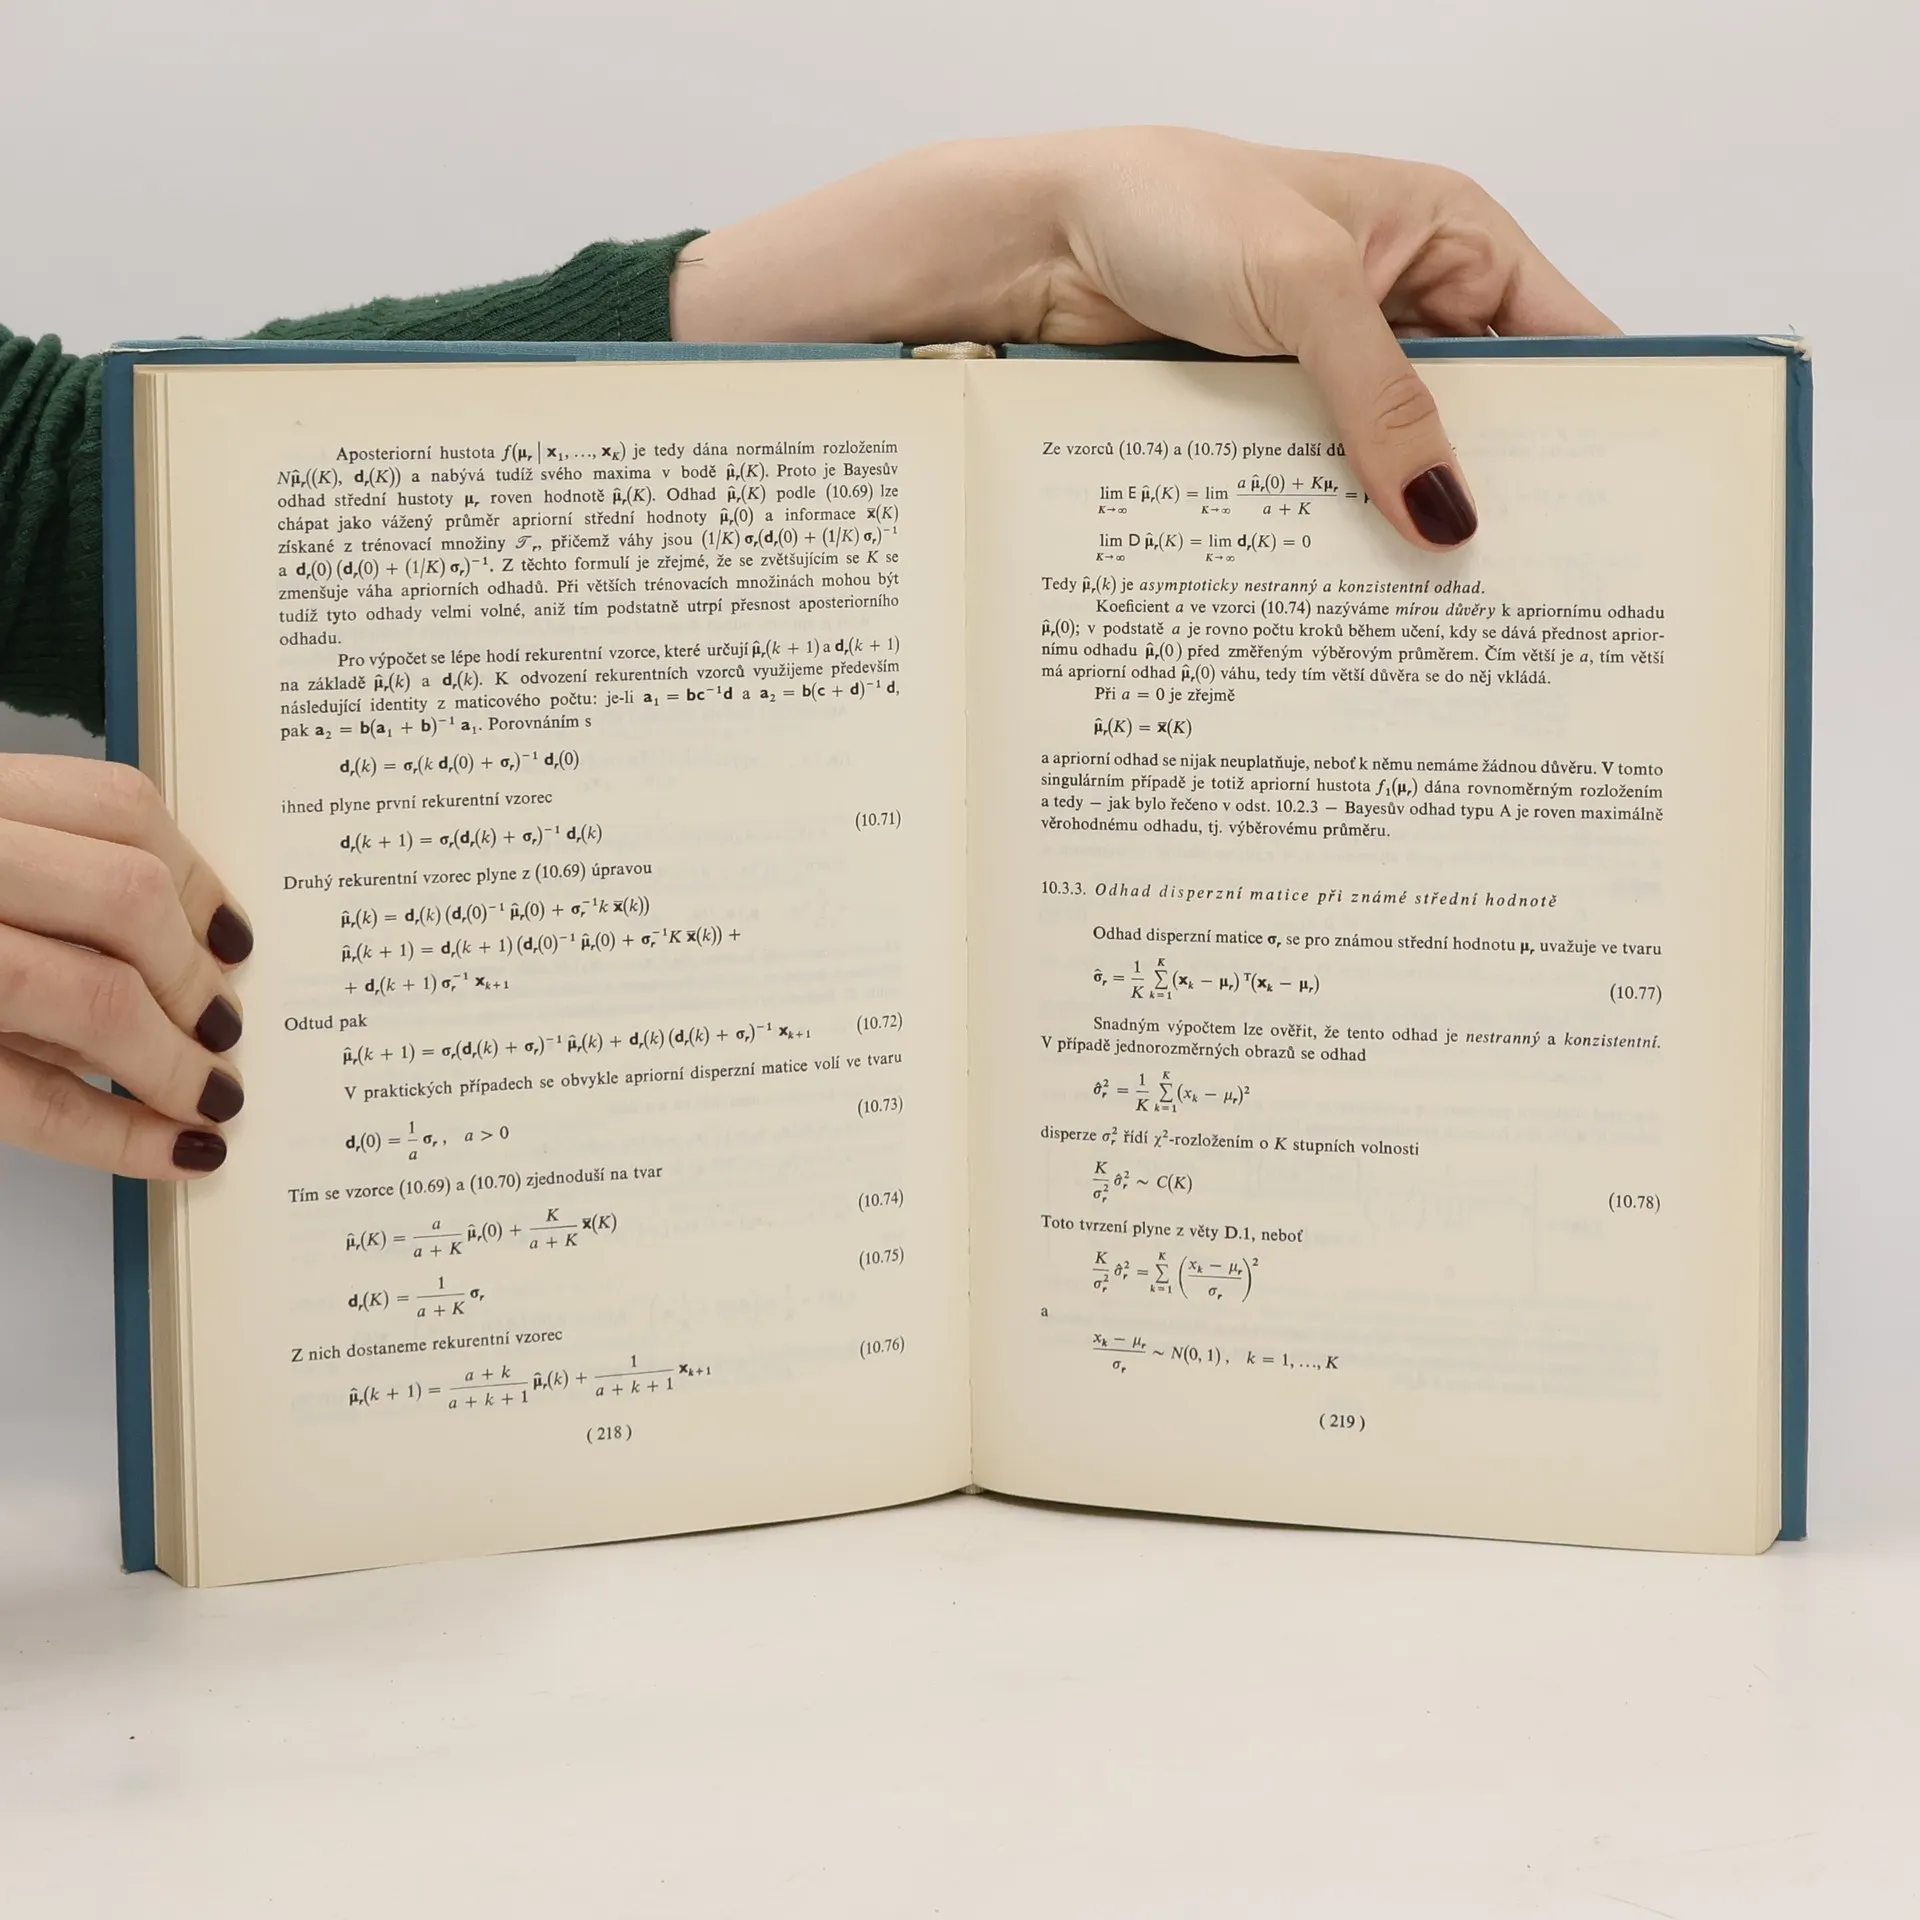 Aposteriorní hustota f(μᵣ | x₁, ..., x_K) je tedy dána normálním rozložením
Nμ̂ᵣ((K), dᵣ(K)) a nabývá tudíž svého maxima v bodě μ̂ᵣ(K). Proto je Bayesův
odhad střední hustoty μᵣ roven hodnotě μ̂ᵣ(K). Odhad μ̂ᵣ(K) podle (10.69) lze
chápat jako vážený průměr apriorní střední hodnoty μ̂ᵣ(0) a informace x̄(K)
získané z trénovací množiny 𝒯ᵣ, přičemž váhy jsou (1/K) σᵣ(dᵣ(0) + (1/K) σᵣ)⁻¹
a dᵣ(0) (dᵣ(0) + (1/K) σᵣ)⁻¹. Z těchto formulí je zřejmé, že se zvětšujícím se K se
zmenšuje váha apriorních odhadů. Při větších trénovacích množinách mohou být
tudíž tyto odhady velmi volné, aniž tím podstatně utrpí přesnost aposteriorního
odhadu.
Pro výpočet se lépe hodí rekurentní vzorce, které určují μ̂ᵣ(k + 1) a dᵣ(k + 1)
na základě μ̂ᵣ(k) a dᵣ(k). K odvození rekurentních vzorců využijeme především
následující identity z maticového počtu: je-li a₁ = bc⁻¹d a a₂ = b(c + d)⁻¹ d,
pak a₂ = b(a₁ + b)⁻¹ a₁. Porovnáním s
dᵣ(k) = σᵣ(k dᵣ(0) + σᵣ)⁻¹ dᵣ(0)
ihned plyne první rekurentní vzorec
dᵣ(k + 1) = σᵣ(dᵣ(k) + σᵣ)⁻¹ dᵣ(k) (10.71)
Druhý rekurentní vzorec plyne z (10.69) úpravou
μ̂ᵣ(k) = dᵣ(k) (dᵣ(0)⁻¹ μ̂ᵣ(0) + σᵣ⁻¹k x̄(k))
μ̂ᵣ(k + 1) = dᵣ(k + 1) (dᵣ(0)⁻¹ μ̂ᵣ(0) + σᵣ⁻¹K x̄(k)) +
+ dᵣ(k + 1) σᵣ⁻¹ xₖ₊₁
Odtud pak
μ̂ᵣ(k + 1) = σᵣ(dᵣ(k) + σᵣ)⁻¹ μ̂ᵣ(k) + dᵣ(k) (dᵣ(k) + σᵣ)⁻¹ xₖ₊₁ (10.72)
V praktických případech se obvykle apriorní disperzní matice volí ve tvaru
dᵣ(0) = 1/a σᵣ, a > 0 (10.73)
Tím se vzorce (10.69) a (10.70) zjednoduší na tvar
μ̂ᵣ(K) = a/(a + K) μ̂ᵣ(0) + K/(a + K) x̄(K) (10.74)
dᵣ(K) = 1/(a + K) σᵣ (10.75)
Z nich dostaneme rekurentní vzorec
μ̂ᵣ(k + 1) = (a + k)/(a + k + 1) μ̂ᵣ(k) + 1/(a + k + 1) xₖ₊₁ (10.76)
( 218 )
Ze vzorců (10.74) a (10.75) plyne další
lim_{K→∞} E μ̂ᵣ(K) = lim_{K→∞} (a μ̂ᵣ(0) + Kμᵣ)/(a + K) =
lim_{K→∞} D μ̂ᵣ(K) = lim_{K→∞} dᵣ(K) = 0
Tedy μ̂ᵣ(k) je asymptoticky nestranný a konzistentní odhad.
Koeficient a ve vzorci (10.74) nazýváme mírou důvěry k apriornímu odhadu
μ̂ᵣ(0); v podstatě a je rovno počtu kroků během učení, kdy se dává přednost aprior-
nímu odhadu μ̂ᵣ(0) před změřeným výběrovým průměrem. Čím větší je a, tím větší
má apriorní odhad μ̂ᵣ(0) váhu, tedy tím větší důvěra se do něj vkládá.
Při a = 0 je zřejmě
μ̂ᵣ(K) = x̄(K)
a apriorní odhad se nijak neuplatňuje, neboť k němu nemáme žádnou důvěru. V tomto
singulárním případě je totiž apriorní hustota f₁(μᵣ) dána rovnoměrným rozložením
a tedy — jak bylo řečeno v odst. 10.2.3 — Bayesův odhad typu A je roven maximálně
věrohodnému odhadu, tj. výběrovému průměru.
10.3.3. Odhad disperzní matice při známé střední hodnotě
Odhad disperzní matice σᵣ se pro známou střední hodnotu μᵣ uvažuje ve tvaru
σ̂ᵣ = 1/K ∑_{k=1}^{K} (xₖ − μᵣ) ᵀ(xₖ − μᵣ) (10.77)
Snadným výpočtem lze ověřit, že tento odhad je nestranný a konzistentní.
V případě jednorozměrných obrazů se odhad
σ̂ᵣ² = 1/K ∑_{k=1}^{K} (xₖ − μᵣ)²
disperze σᵣ² řídí χ²-rozložením o K stupních volnosti
K/σᵣ² σ̂ᵣ² ~ C(K) (10.78)
Toto tvrzení plyne z věty D.1, neboť
K/σᵣ² σ̂ᵣ² = ∑_{k=1}^{K} ((xₖ − μᵣ)/σᵣ)²
a
(xₖ − μᵣ)/σᵣ ~ N(0, 1), k = 1, ..., K
( 219 )